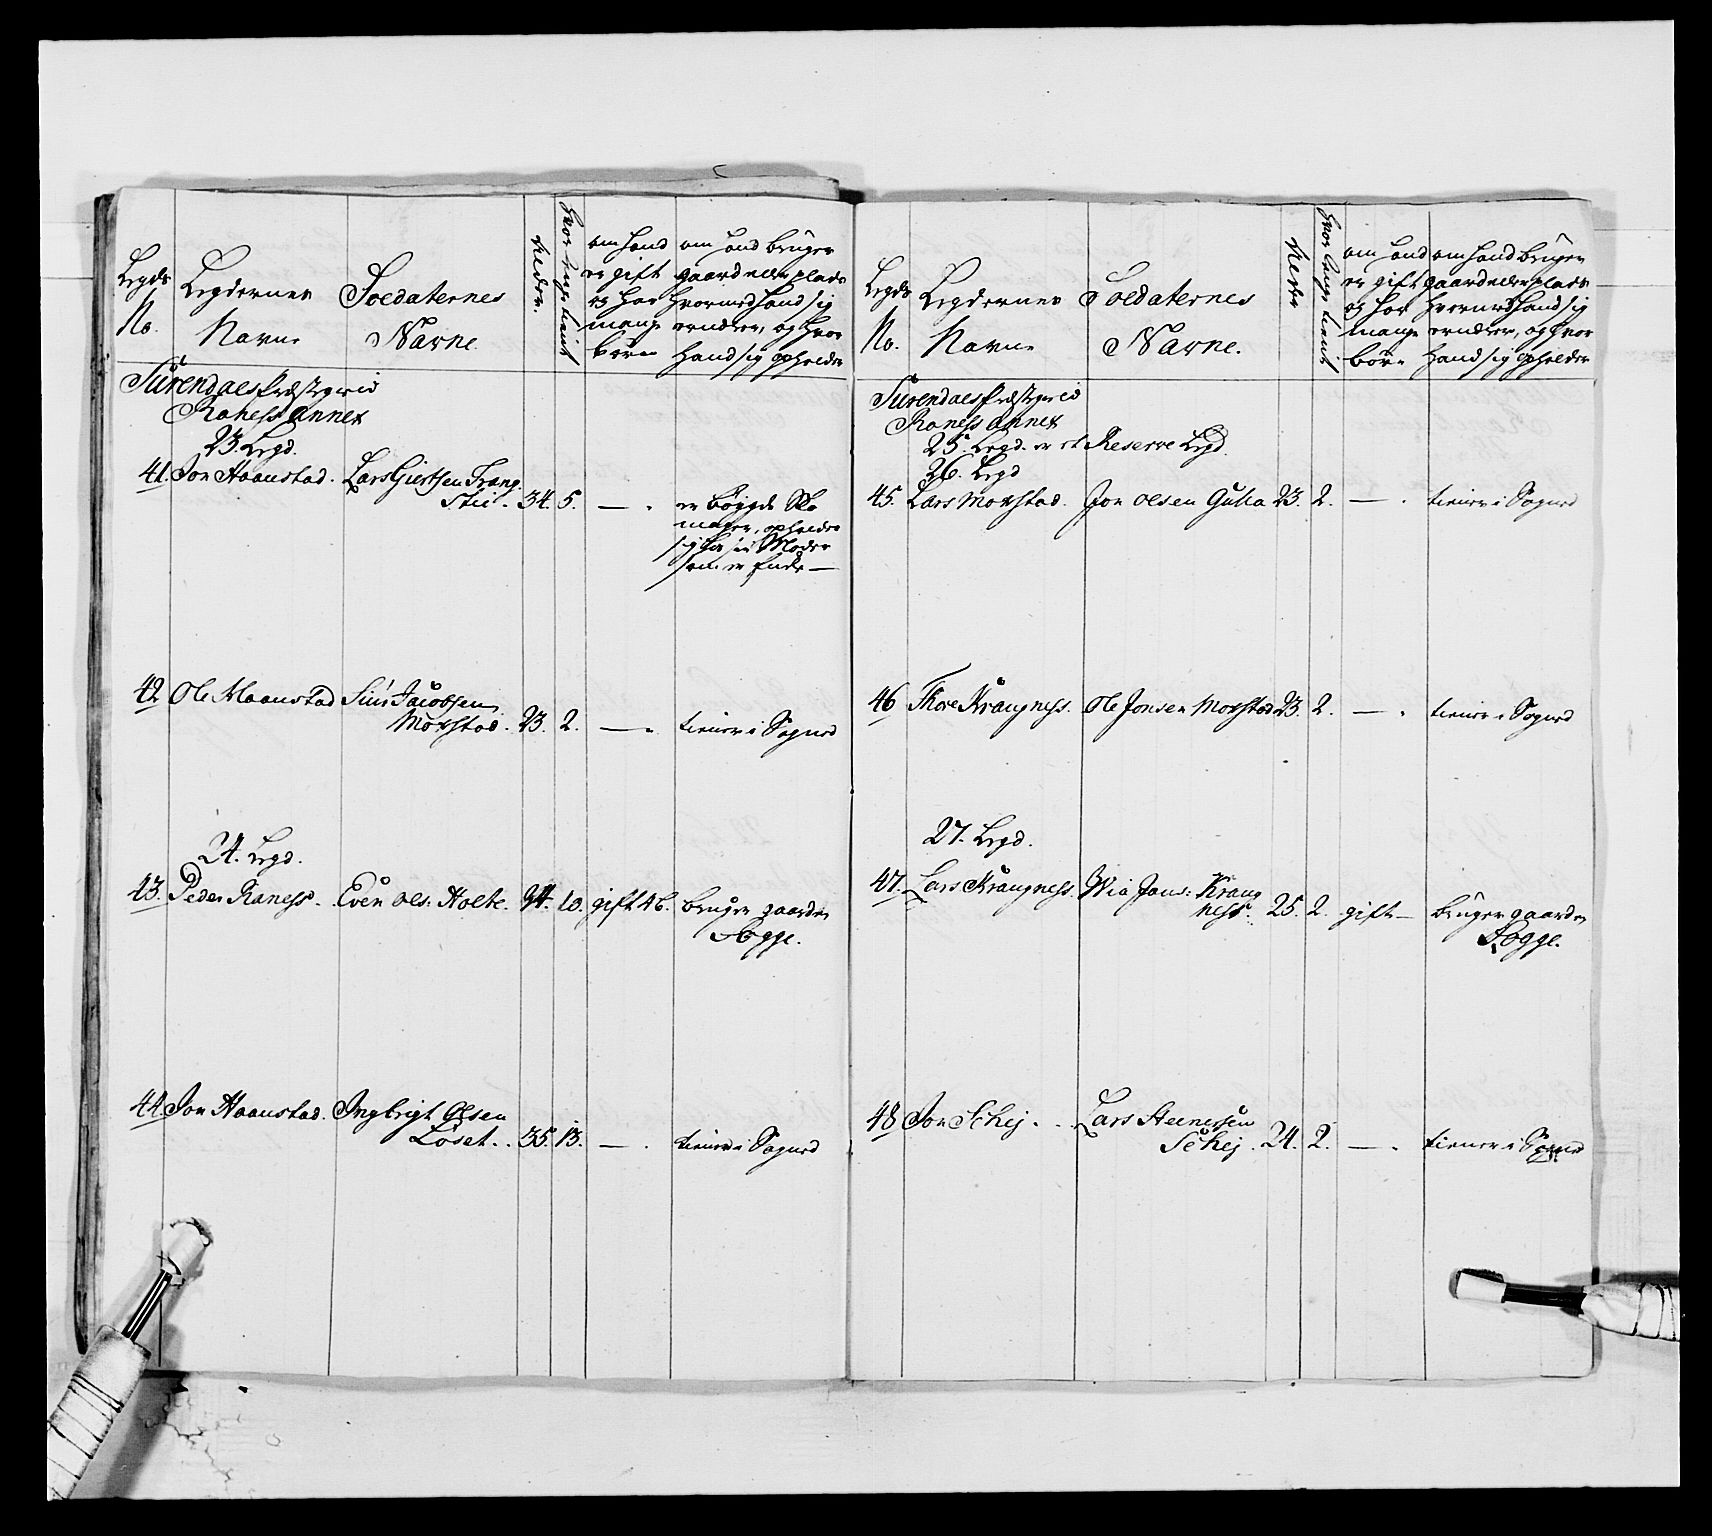 Legds
No.
Legdernes
Navne
Soldaternes
Navne
Alder.
hvor lenge tient
om hand
er gift
og har
mange
börn
om hand bruger
gaard eller plads
hvormed hand sig
ernærer, og hvor
hand sig opholder
Surendals Præstegield
Raness Annex
23. Legd.
41. Jon Haanstad. Lars Giertsen Trang
Stu. 34. 5. — . er bøygde Sko
mager, opholder
sig hos sin Moder
som er Enke —
42 Ole Haanstad Siur Jacobsen
Moxstad. 23. 2. — . tiener i Sognet
24. Legd.
43. Peder Raness. Even Ols: Holte. 44. 10. gift 4 b. bruger gaarden
Fogge.
44. Jon Haanstad. Ingbrigt Olsen
Löset. . 35. 13. — . tiener i Sognet
Legds
No.
Legdernes
Navne
Soldaternes
Navne.
Alder
hvor lenge tient
om hand
er gift
og har
mange
börn
om hand bruger
gaard eller plads
hvormed hand sig
ernærer, og hvor
hand sig opholder
Surendals Præstegield
Raness Annex
25. Legd. er et Reserve Legd.
26. Legd
45. Lars Moxstad. Jon Olsen Gulla 23. 2. — . tiener i Sognet
46 Thore Krangness. Ole Jonsen Moxstad 23. 2. — . tiener i Sognet
27. Legd.
47. Lars Krangness. Jons: Krang
ness. 25. 2. gift — bruger gaarden
Fogge.
48 Jon Schej. . . Lars Steenersen
Schej. 24. 2. — . tiener i Sognet